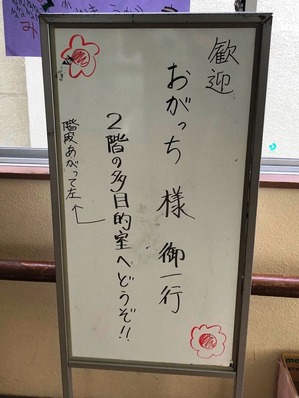 歓迎
おがっち様 御一行
2階の多目的室へどうぞ!!
階段あがって左